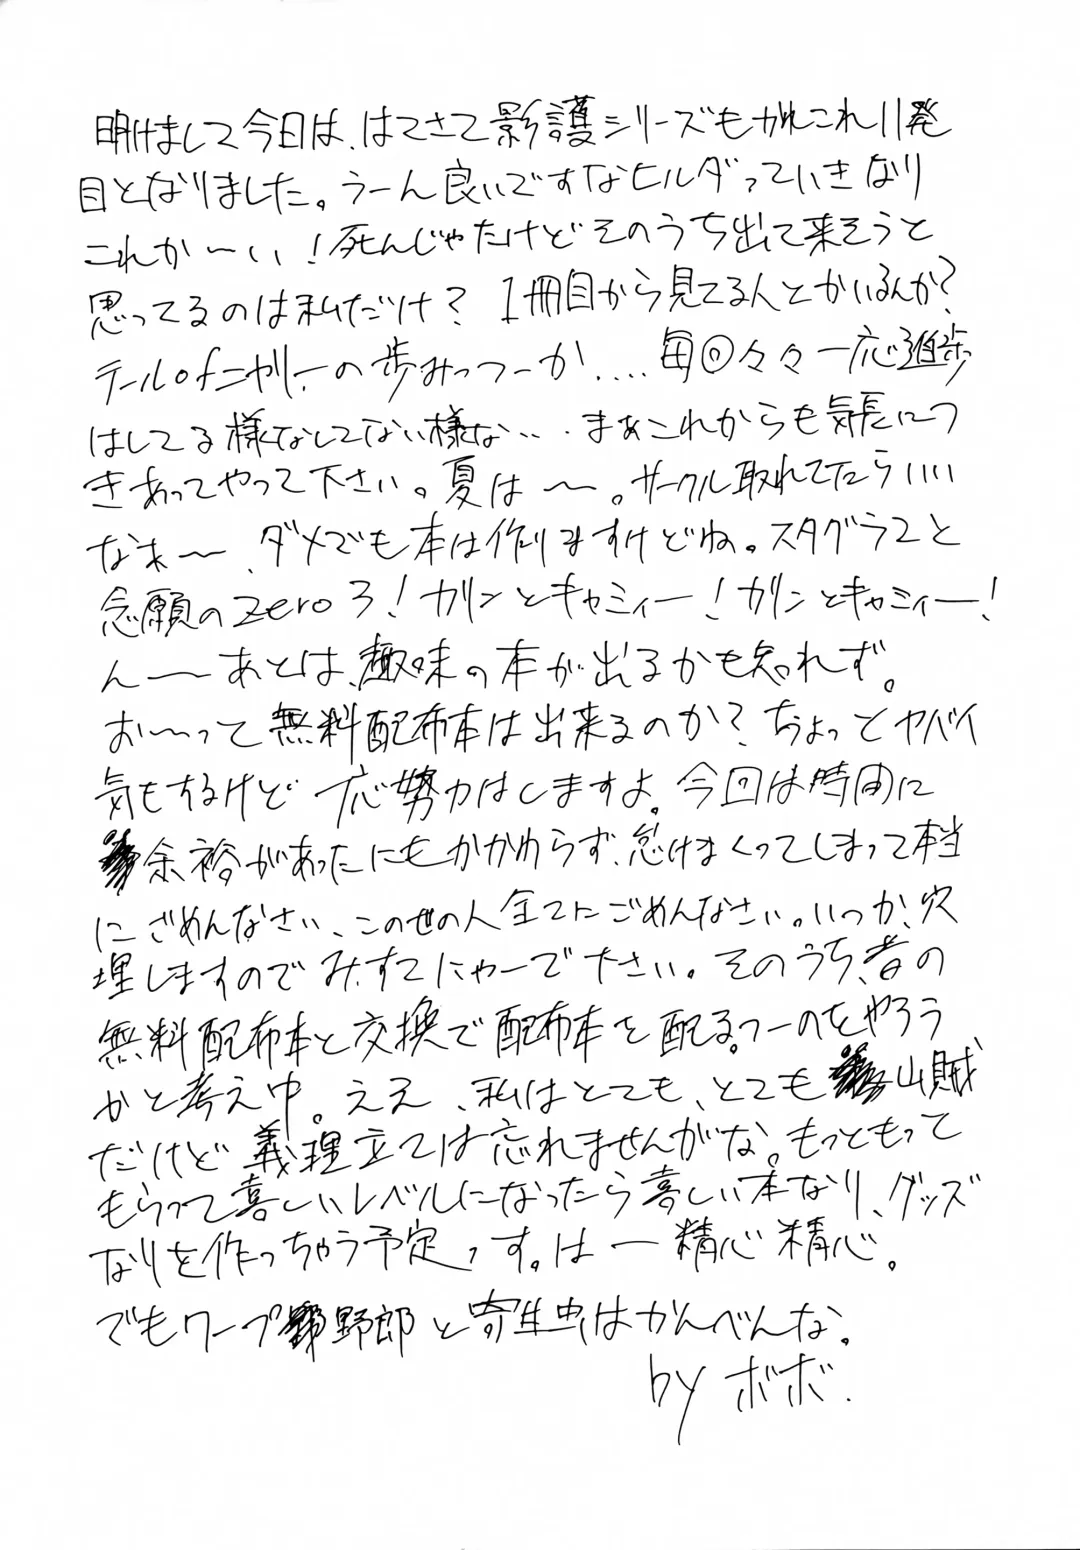 明けまして今日は、はてさて影護シリーズもかれこれ11発
目となりました。うーん良いですなヒルダっていきなり
これか〜い!死んじゃたけどそのうち出て来そうと
思ってるのは私だけ?1冊目から見てる人とかいるんか?
テールofニャリーの歩みっつーか....毎回々々一応進歩
はしてる様なしてない様な・・・まぁこれからも気長につ
きあってやって下さい。夏は〜。サークル取れてたらいい
なぁ〜、ダメでも本は作りますけどね。スタグラ2と
念願のzero3!カリンとキャミィー!カリンとキャミィー!
んーあとは、趣味の本が出るかも知れず。
お〜って無料配布本は出来るのか?ちょっとヤバイ
気もするけど一応努力はしますよ。今回は時間に
余裕があったにもかかわらず、怠けまくってしまって本当
にごめんなさい、この世の人全てにごめんなさい。いつか、穴
埋しますのでみすてにゃーで下さい。そのうち、昔の
無料配布本と交換で配布本を配るっつーのをやろう
かと考え中。ええ、私はとても、とても山賊
だけど義理立ては忘れませんがな。もっともって
もらって喜しいレベルになったら喜しい本なり、グッズ
なりを作っちゃう予定っす。はー精心精心。
でもワープ野郎と寄生虫はかんべんな。
by ボボ.